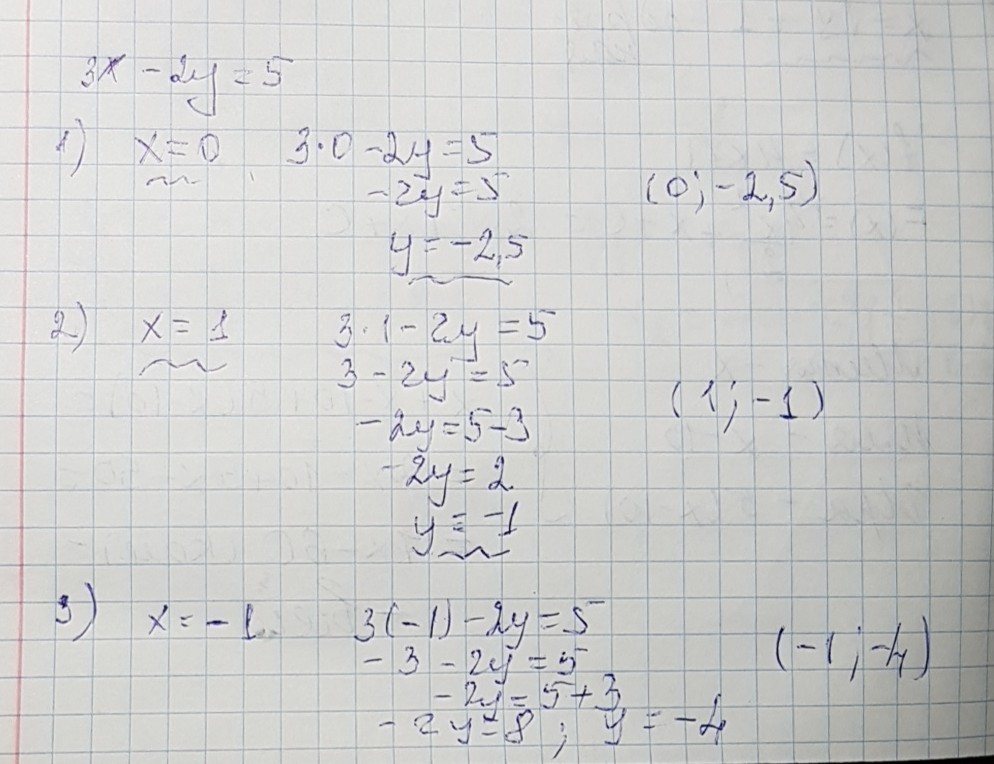 3x - 2y = 5
1) x = 0 3·0 - 2y = 5
-2y = 5 (0; -2,5)
y = -2,5
2) x = 1 3·1 - 2y = 5
3 - 2y = 5
(1; -1)
-2y = 5-3
-2y = 2
y = -1
3) x = -1 3(-1) - 2y = 5
-3 - 2y = 5 (-1; -4)
-2y = 5+3
-2y = 8; y = -4